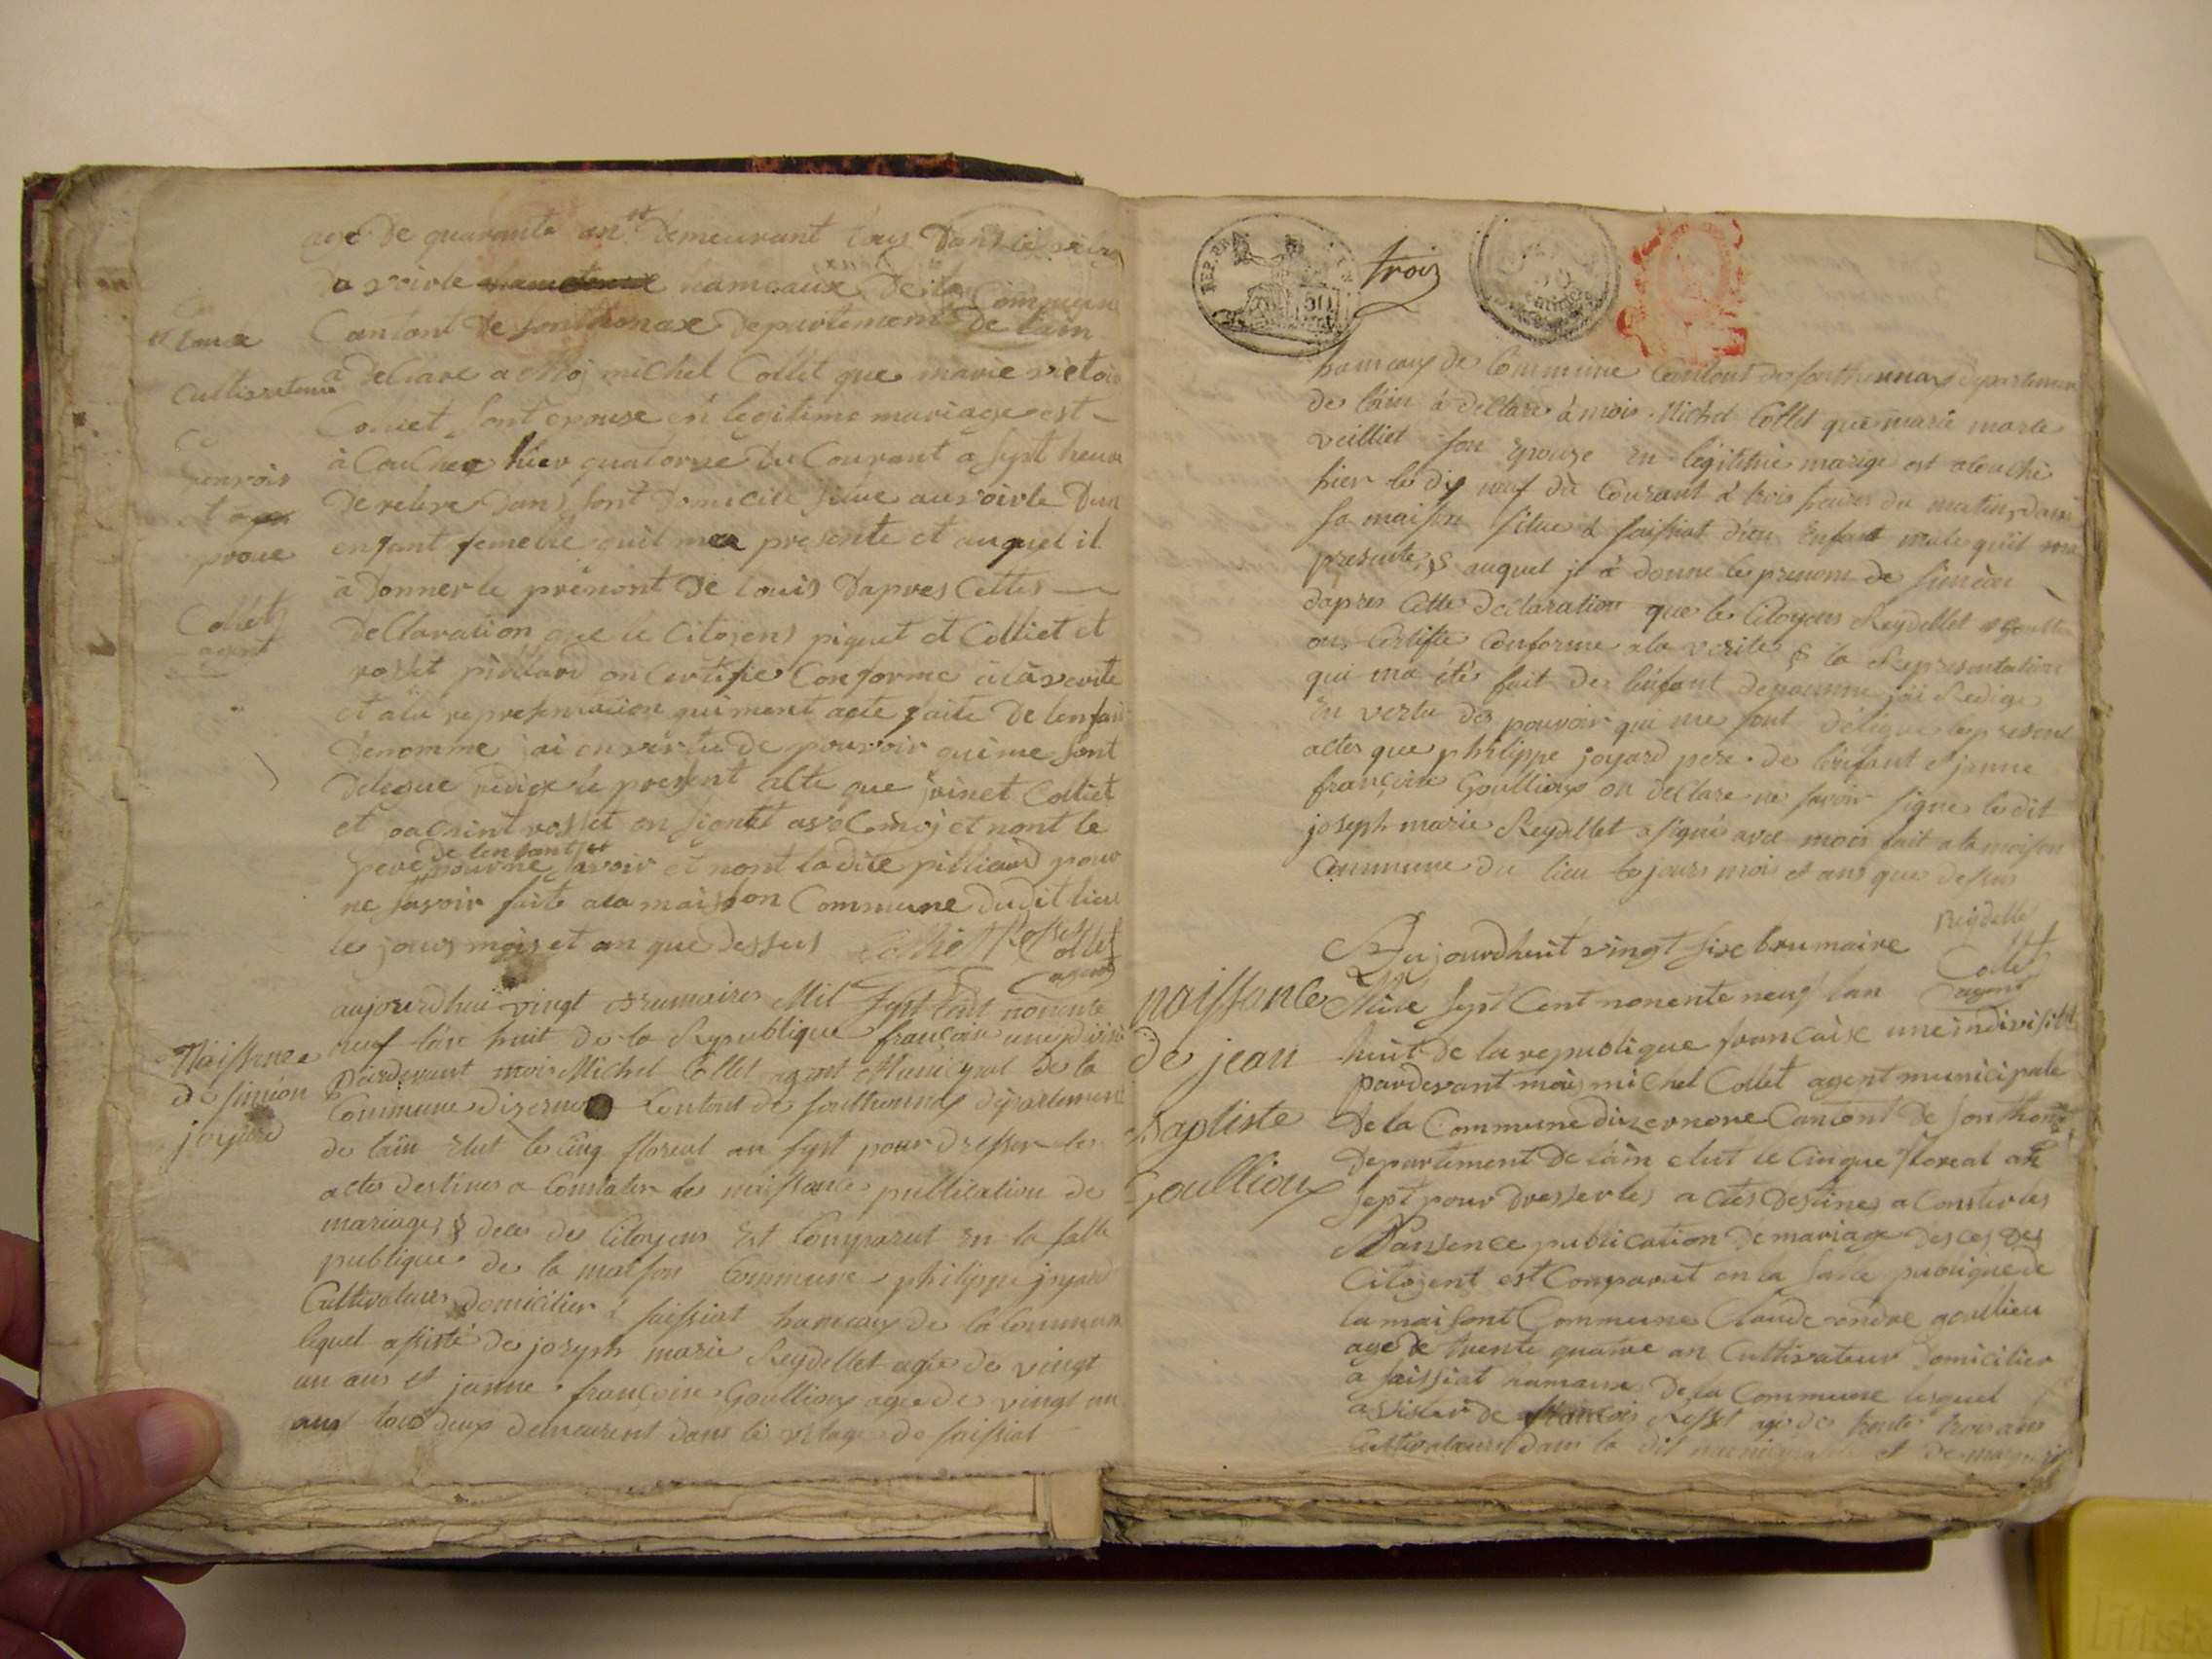 age de quarante an demeurant tous dans le village
de voirle hameaux de la Commune
Cantont de sonthonax departement de lain
a declare a Moj michel Collet que marie victoire
Colliet sont epouse en legitime mariage est
à Coucher hier quatorze du Courant a sept heure
De relere dans sont domicile situe au voirle Dun
enfant femelle quil mea presente et auquel il
à donner le prénont de Louis dapres Cettes
declaration que le Citojens piquet et Colliet et
rosset pilliard on Certifie Conforme à la verite
et ala representation qui ment aete faite de lenfant
denomme jai en vertu de pouvoir qui me sont
delegue redige le present acte que joinet Colliet
et rosset on signet avec moj et nont le
pere de lenfant pour ne savoir et nont la dite pilliard pour
ne savoir faite a la maison Commune dudit lieu
le jours mois et an que dessus Colliet Rosset
Collet
agent
et
Cultivateur
renvois
et
proue
Collet
agent
Naissence
de siméon
joyard
aujourdhui vingt brumaires Mil sept Cent nonente
neuf lan huit de la Republique francaise une
Pardevant mois Michel Collet agent Municipal de la
Commune dizernore Contont de sonthonnax département
de lain Elut le Cinq floreal an sept pour dresser les
actes destines a Constater les naissance publication de
mariages & deces des Citoyens Est Comparut en la salle
publique de la maison Commune philippe joyard
Cultivateurs domicilier à saissiat hameaux de la Commune
lequel assisté de joseph marie Reydellet agée de vingt
un ans et janne francoise Goullioux agée de vingt un
ans tous deux demeurent dans le vilage de saissiat
trois
hameaux de Commune Contont de sonthonnax departement
de lain à declare à mois Michel Collet que marie
veilliet son Epouze en légitime marige est acouché
hier le dix neuf du Courant à trois heures du matin dans
sa maison situe à saissiat d'un Enfant male qu'il ma
presente, & auquel jl à donne le prenom de siméon
dapres Cette declaration que les Citoyens Reydellet et Goullioux
ons Certifie Conforme a la verites & la Representation
qui ma étés fait de l'enfant denomme jai Redige
En vertu des pouvoir qui me sont délégue le present
actes que philippe joyard pere de l'enfant & janne
francoise Goullioux on declare ne savoir signe le dit
joseph marie Reydellet a signé avec mois fait a la maison
Commune du lieu le jours mois et ans que dessus
Reidellet
Collet
agent
naissance
de jean
Baptiste
Goullioux
Aujourdhuit vingt sixe brumaire
Mile sept Cent nonente neuf lan
huit de la republique francaise une indivisible
pardevant moij michel Collet agent municipale
De la Commune dizernore Cantont de sonthonax
Departement De lain elut le Cinque floreal an
sept pour dresser les actes destines a Conster les
Naissence publication de mariage desces des
Citojent est Comparut en la salle publique de
la maisont Commune Claude andre goullieu
age de trente quatre an Cultivateur Domicilier
a saissiat hamaux de la Commune lesquel
assister de francois Rosset age de trente trois ans
Cultivateur dans la dit et de